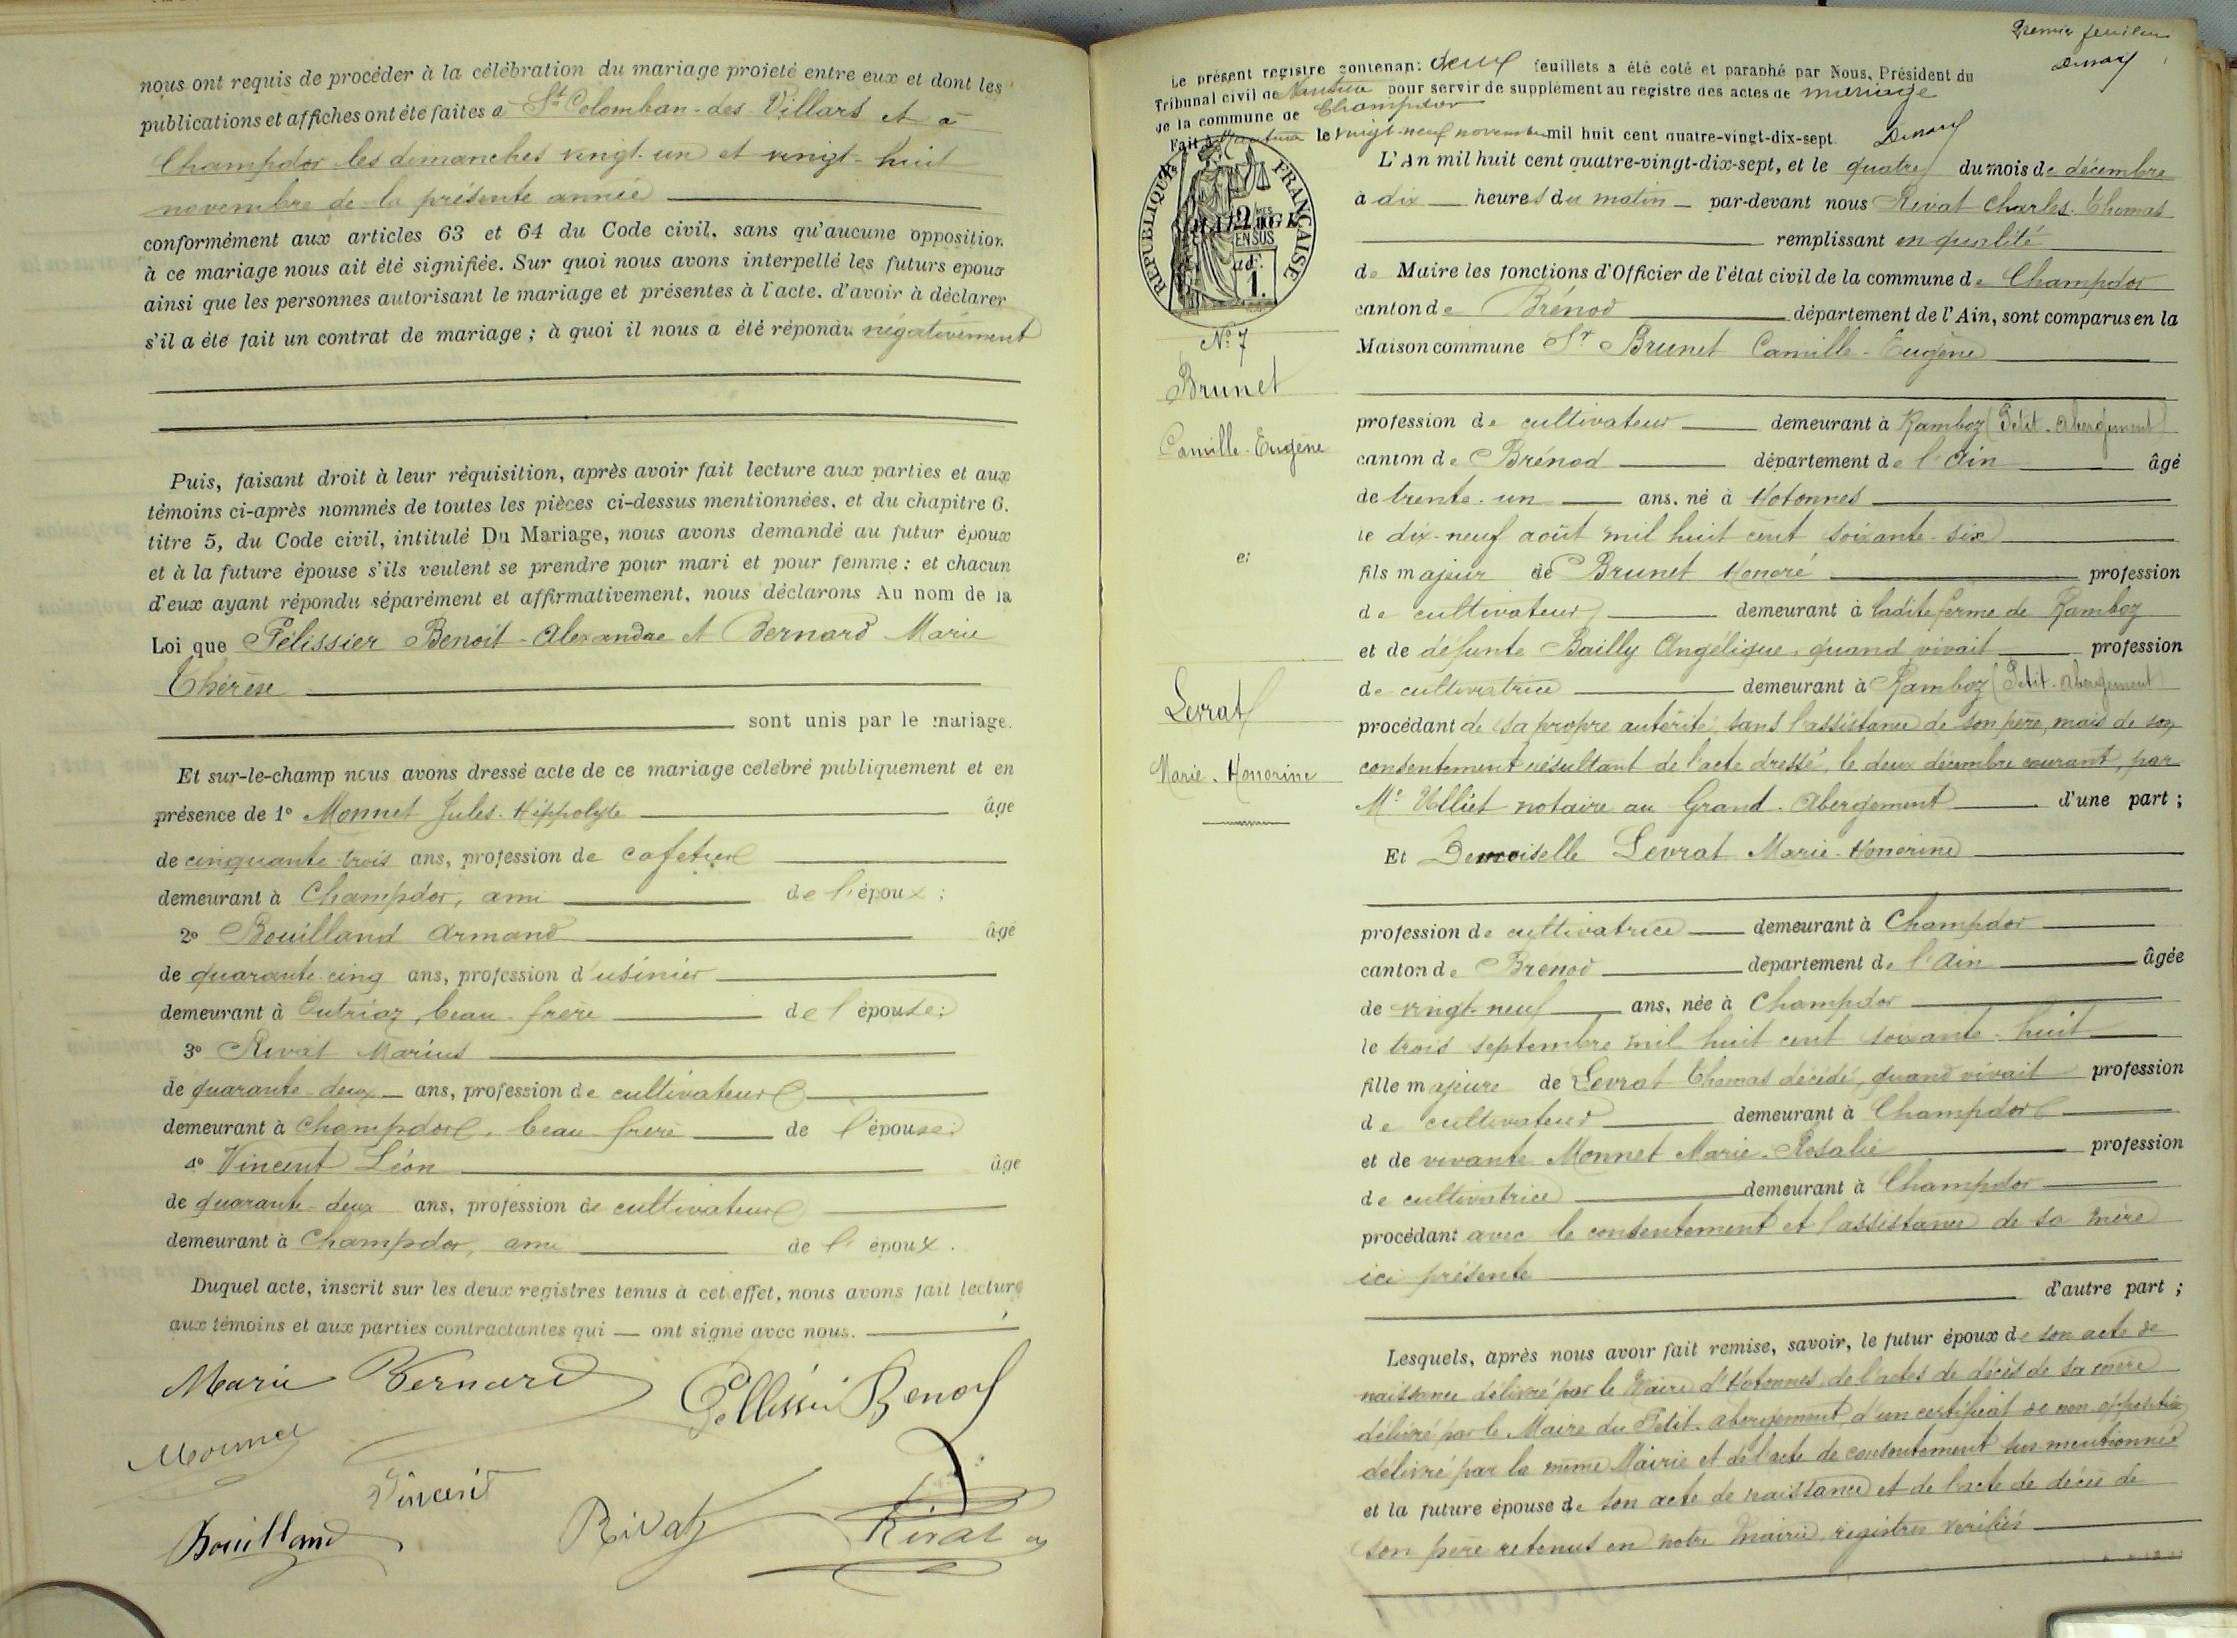 nous ont requis de procéder à la célébration du mariage projeté entre eux et dont les
publications et affiches ont été faites à St Colomban-des-Villars et à
Champdor les dimanches vingt-un et vingt-huit
novembre de la présente année
conformément aux articles 63 et 64 du Code civil, sans qu'aucune opposition
à ce mariage nous ait été signifiée. Sur quoi nous avons interpellé les futurs époux
ainsi que les personnes autorisant le mariage et présentes à l'acte, d'avoir à déclarer
s'il a été fait un contrat de mariage ; à quoi il nous a été répondu négativement
Puis, faisant droit à leur réquisition, après avoir fait lecture aux parties et aux
témoins ci-après nommés de toutes les pièces ci-dessus mentionnées, et du chapitre 6.
titre 5, du Code civil, intitulé Du Mariage, nous avons demandé au futur époux
et à la future épouse s'ils veulent se prendre pour mari et pour femme : et chacun
d'eux ayant répondu séparément et affirmativement, nous déclarons Au nom de la
Loi que Pélissier Benoit-Alexandre et Bernard Marie
Thérèse
sont unis par le mariage.
Et sur-le-champ nous avons dressé acte de ce mariage célébré publiquement et en
présence de 1° Monnet Jules-Hippolyte âgé
de cinquante-trois ans, profession de cafetier
demeurant à Champdor, ami de l'époux ;
2° Bouilland Armand âgé
de quarante-cinq ans, profession d'usinier
demeurant à Outriaz, beau-frère de l'épouse ;
3° Rivat Marius
de quarante-deux ans, profession de cultivateur
demeurant à Champdor, beau-frère de l'épouse ;
4° Vincent Léon âgé
de quarante-deux ans, profession de cultivateur
demeurant à Champdor, ami de l'époux.
Duquel acte, inscrit sur les deux registres tenus à cet effet, nous avons fait lecture
aux témoins et aux parties contractantes qui ont signé avec nous.
Marie Bernard Pellissié Benoit
Monnet
Vincent
Bouilland Rivat Rivat
Premier feuillet
Le présent registre contenant deux feuillets a été coté et paraphé par Nous, Président du
Tribunal civil de Nantua pour servir de supplément au registre des actes de mariage
de la commune de Champdor
Fait à Nantua le vingt-neuf novembre mil huit cent quatre-vingt-dix-sept.
RÉPUBLIQUE FRANÇAISE
2 MES
EN SUS
N° 7
Brunet
Camille-Eugène
et
Levrat
Marie-Honorine
L'An mil huit cent quatre-vingt-dix-sept, et le quatre du mois de décembre
à dix heures du matin par-devant nous Rivat Charles-Thomas
remplissant en qualité
de Maire les fonctions d'Officier de l'état civil de la commune de Champdor
canton de Brénod département de l'Ain, sont comparus en la
Maison commune Sr Brunet Camille-Eugène
profession de cultivateur demeurant à Ramboz (Petit-Abergement)
canton de Brénod département de l'Ain âgé
de trente-un ans, né à Hotonnes
le dix-neuf août mil huit cent soixante-six
fils majeur de Brunet Honoré profession
de cultivateur demeurant à ladite ferme de Ramboz
et de défunte Bailly Angélique, quand vivait profession
de cultivatrice demeurant à Ramboz (Petit-Abergement)
procédant de sa propre autorité, sans l'assistance de son père, mais de son
consentement résultant de l'acte dressé, le deux décembre courant, par
Me Ulliet notaire au Grand-Abergement d'une part ;
Et Demoiselle Levrat Marie-Honorine
profession de cultivatrice demeurant à Champdor
canton de Brénod département de l'Ain âgée
de vingt-neuf ans, née à Champdor
le trois septembre mil huit cent soixante-huit
fille majeure de Levrat Thomas décédé, quand vivait profession
de cultivateur demeurant à Champdor
et de vivante Monnet Marie-Rosalie profession
de cultivatrice demeurant à Champdor
procédant avec le consentement et l'assistance de sa mère
ici présente
d'autre part ;
Lesquels, après nous avoir fait remise, savoir, le futur époux de son acte de
naissance délivré par le Maire d'Hotonnes, de l'actes de décès de sa mère
délivré par le Maire du Petit-Abergement, d'un certificat de non opposition
délivré par la même Mairie et de l'acte de consentement sus mentionné
et la future épouse de son acte de naissance et de l'acte de décès de
son père retenus en notre Mairie, registres vérifiés